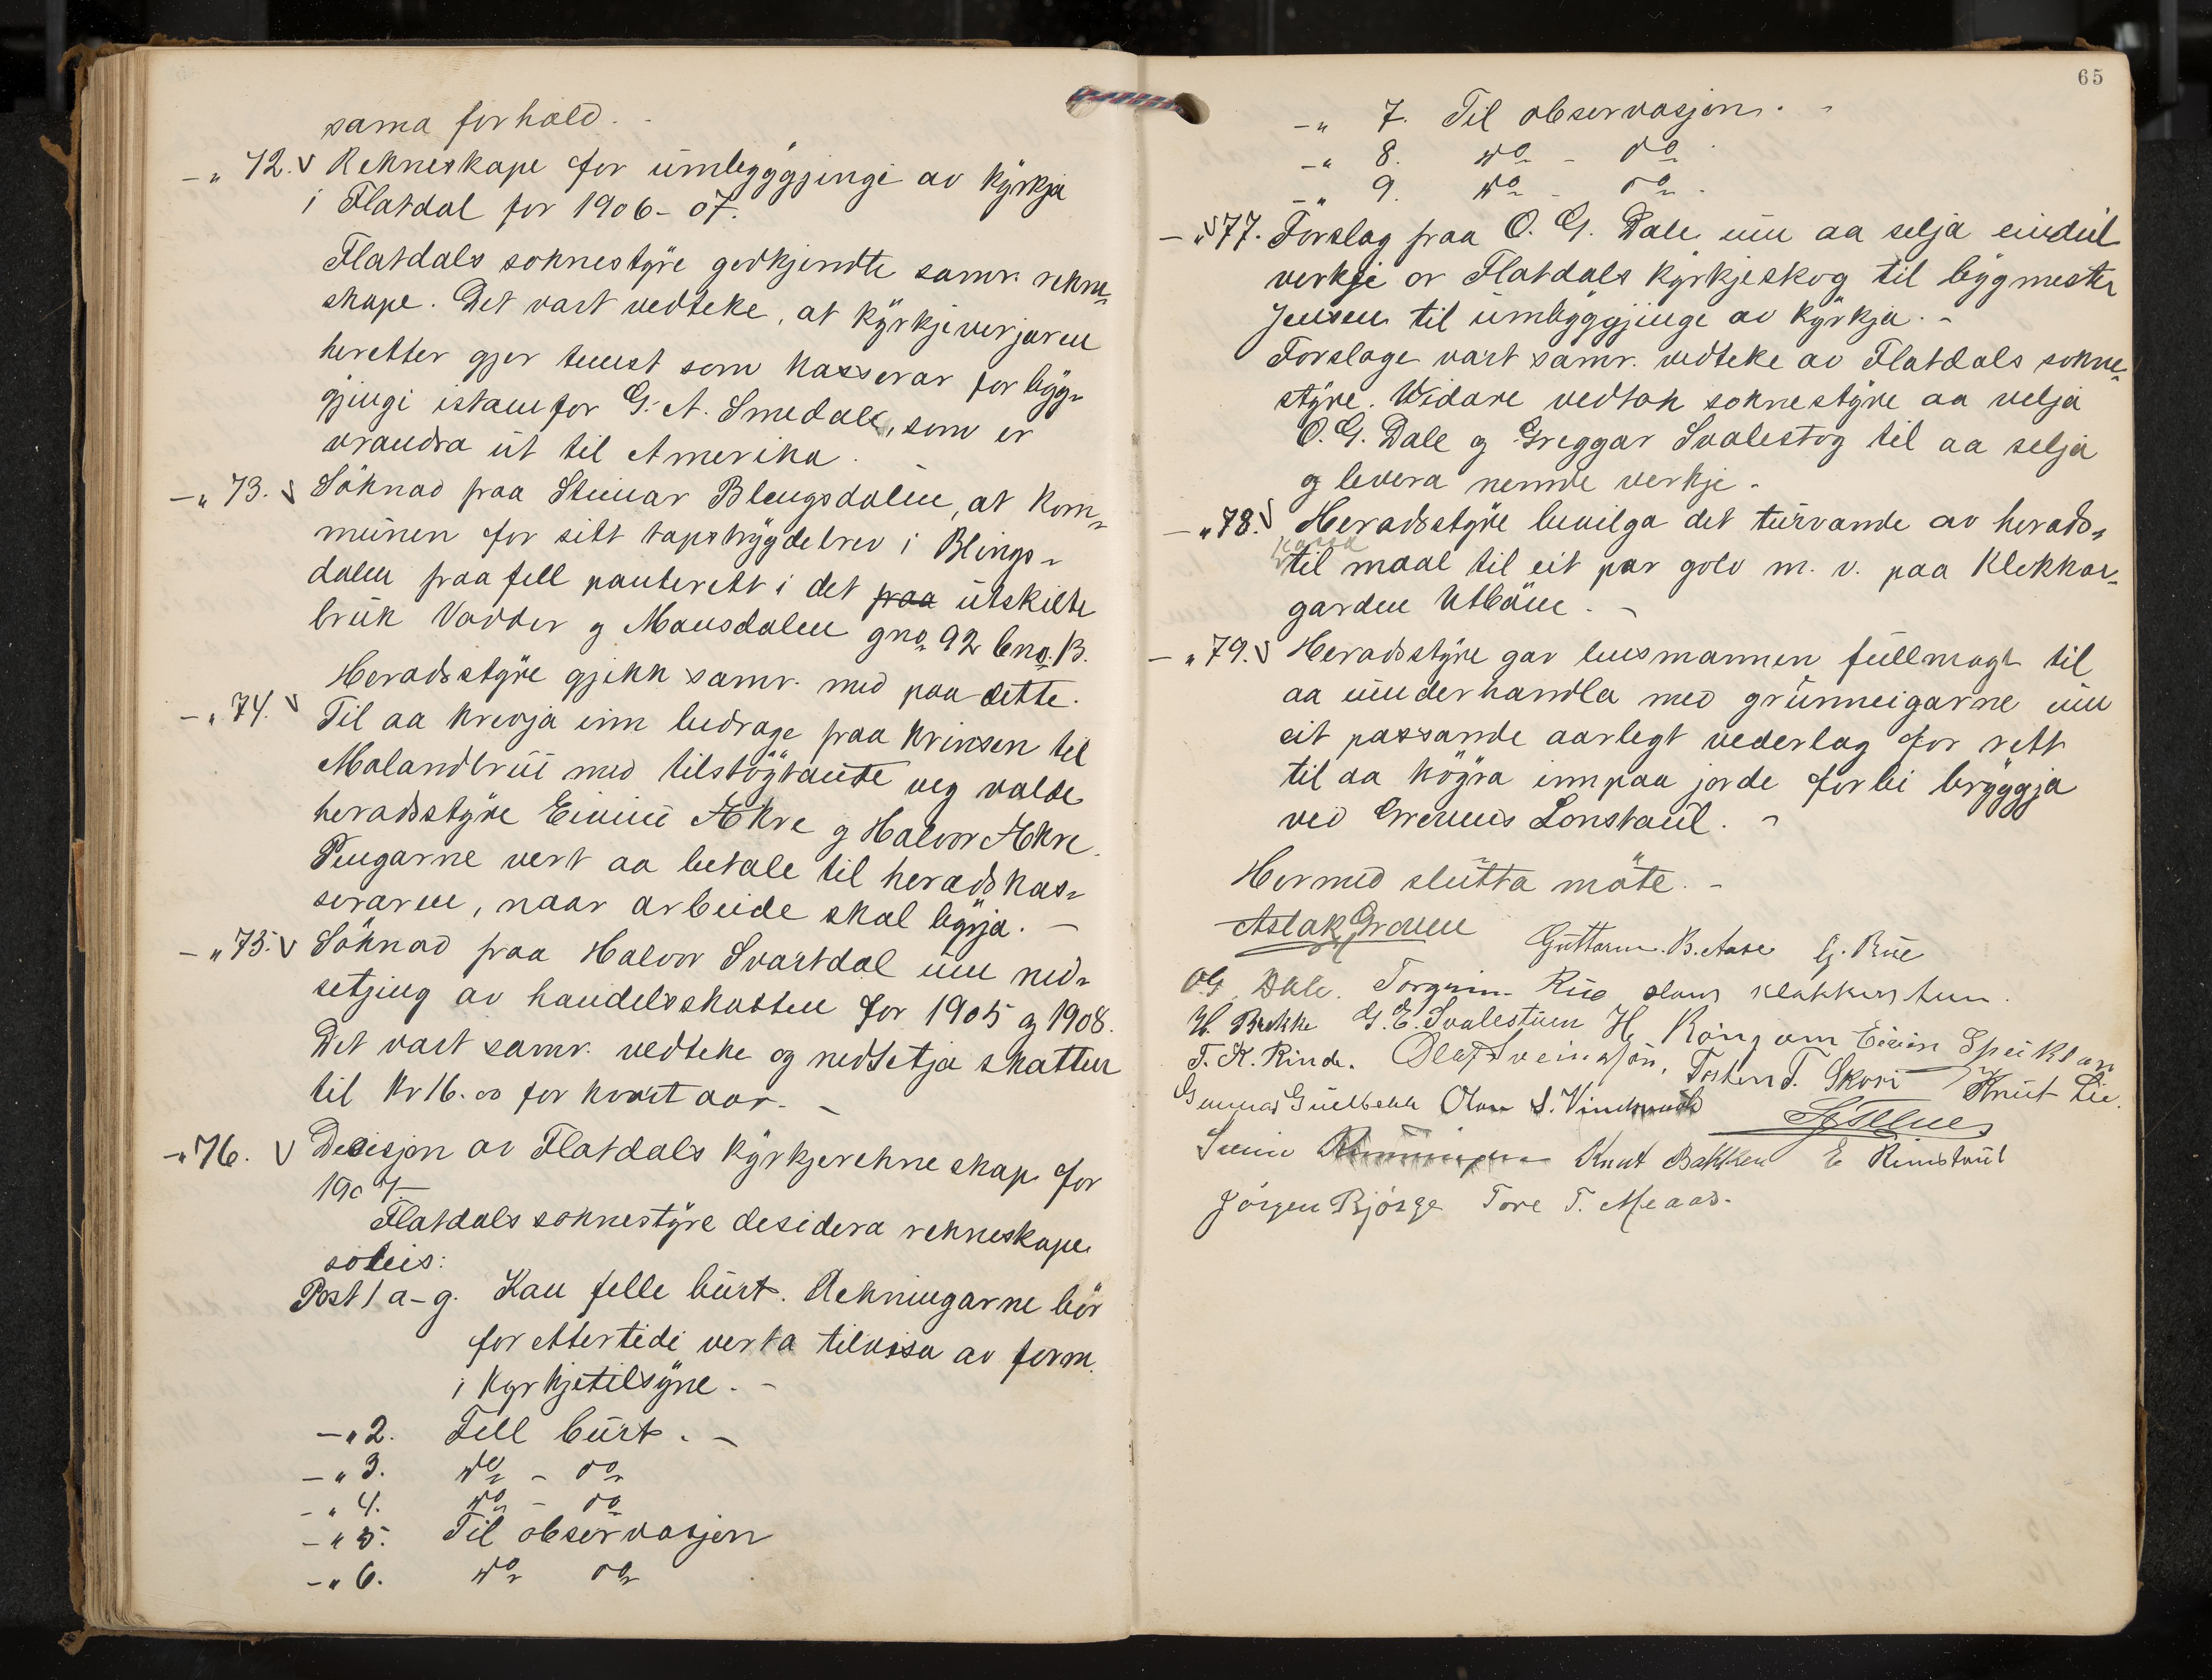 sama forhald. -
-„ 72. V Rekneskape for umbyggjingi av kyrkja
i Flatdal for 1906-07.
Flatdals soknestyre godkjendte samr. rekne-
skape. Det vart vedteke, at kyrkjeverjaren
heretter gjer tenest som kasserar for byg-
gjingi istaenfor G. A. Smedal, som er
vraudra ut til Amerika.
-„ 73. V Söknad fraa Steinar Blengsdalen, at kom-
munen for sitt tapstrygdebrev i Blengs-
dalen fraafell panterett i det fraa utskilte
bruk Vadder g Mansdalen gno 92 bno. 13.
Heradsstyre gjekk samr. med paa dette.
-„ 74. V Til aa krevja inn bidrage fraa krinsen til
Molandbrui med tilstöytande veg valde
heradsstyre Eivind Aakre g Halvor Aakre.
Pengarne vert aa betale til heradskas-
seraren, naar arbeide skal byrja. -
-„ 75. V Söknad fraa Halvor Svartdal um ned-
setjing av handelsskatten for 1905 g 1908.
Det vart samr. vedteke og nedsetja skatten
til Kr 16.00 for kvart aar. -
-„ 76. V Decisjon av Flatdals kyrkjerekneskap for
1907
Flatdals soknestyre desidera rekneskape
soleis:
Post 1 a-g. Kan felle burt. Rekningarne bör
for ettertidi verta tilvissa av form.
i kyrkjetilsyne. -
-„ 2. Fell burt. -
-„ 3. do - do
-„ 4. do - do
-„ 5. Til observasjon
-„ 6. do do
65
-„ 7. Til observasjon. -
-„ 8. do - do
-„ 9. do - do.
-„ V 77. Forslag fraa O. G. Dale um aa selja eindeel
verkje or Flatdals kyrkjeskog til bygmester
Jensen til umbyggjingi av kyrkja. -
Forslage vart samr. vedteke av Flatdals sokne-
styre. Vidare vedtok soknestyre aa velja
O. G. Dale g Greggar Svalestog til aa selja
g levera nemde verkje.
-„ 78. V Heradsstyre bevilga det turvande av herads-
kassa
til maal til eit par golv m. v. paa Klokkar-
garden Utböen. -
-„ 79. V Heradsstyre gav lensmannen fullmagt til
aa underhandla med grunneigarne um
eit passande aarlegt vederlag for rett
til aa köyra innpaa jorde forbi bryggja
ved Grenens Lonstaul. -
Hermed slutta möte. -
Aslak Groven Guttorm. B. Aase G. Rue
O G. Dale. Torgrim Rue Olav Klokkerstuen.
H. Brekke G. E. Svalestuen H Röngom Eivin Speiklan
T. K. Rinde. Olaf Sveinssön, Torstein T. Skori Knut Lie.
Gunnar Gullbekk Olav S. Vindsvold
Svein Knut Bakken E Rinstaul
Jörgen Bjórge Tore T. Meaas.